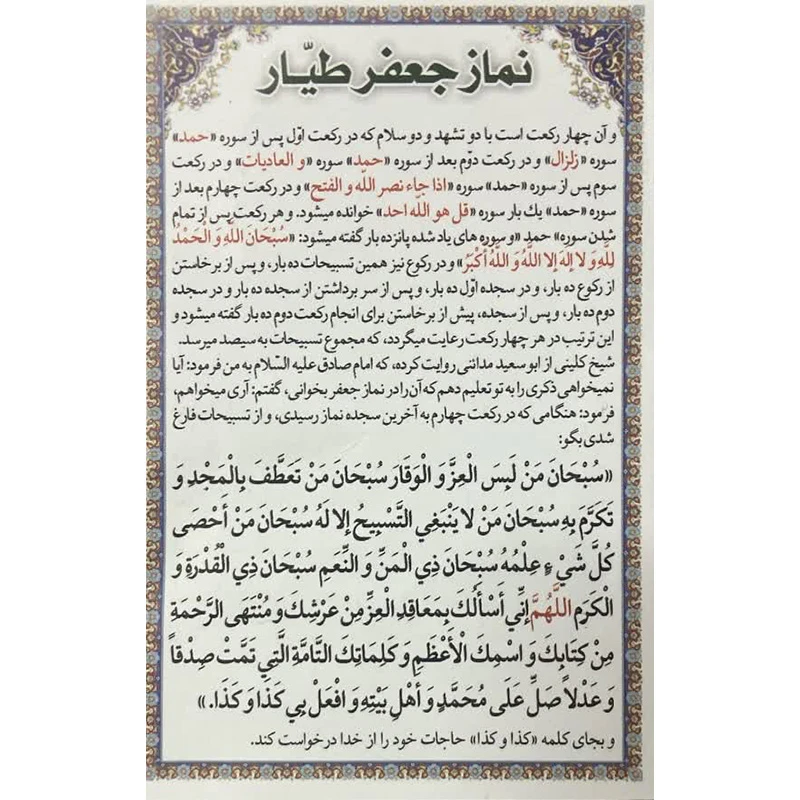 نماز جعفر طیّار
و آن چهار رکعت است با دو تشهد و دو سلام که در رکعت اوّل پس از سوره «حمد»
سوره «زلزال» و در رکعت دوّم بعد از سوره «حمد» سوره «و العادیات» و در رکعت
سوم پس از سوره «حمد» سوره «اذا جاء نصر اللّه و الفتح» و در رکعت چهارم بعد از
سوره «حمد» یك بار سوره «قل هو اللّه احد» خوانده میشود. و هر رکعت پس از تمام
شدن سوره» حمد «و سوره های یاد شده پانزده بار گفته میشود: «سُبْحَانَ اللَّهِ وَ الْحَمْدُ
لِلَّهِ وَ لا إِلهَ إِلا اللَّهُ وَ اللَّهُ أَكْبَرُ» و در رکوع نیز همین تسبیحات ده بار، و پس از برخاستن
از رکوع ده بار، و در سجده اوّل ده بار، و پس از سر برداشتن از سجده ده بار و در سجده
دوم ده بار، و پس از سجده، پیش از برخاستن برای انجام رکعت دوم ده بار گفته میشود و
این ترتیب در هر چهار رکعت رعایت میگردد، که مجموع تسبیحات به سیصد میرسد.
شیخ کلینی از ابو سعید مدائنی روایت کرده، که امام صادق علیه السّلام به من فرمود: آیا
نمیخواهی ذکری را به تو تعلیم دهم که آن را در نماز جعفر بخوانی، گفتم: آری میخواهم،
فرمود: هنگامی که در رکعت چهارم به آخرین سجده نماز رسیدی، و از تسبیحات فارغ
شدی بگو:
«سُبْحَانَ مَنْ لَبِسَ الْعِزَّ وَ الْوَقَارَ سُبْحَانَ مَنْ تَعَطَّفَ بِالْمَجْدِ وَ
تَكَرَّمَ بِهِ سُبْحَانَ مَنْ لا يَنْبَغِي التَّسْبِيحُ إِلا لَهُ سُبْحَانَ مَنْ أَحْصَى
كُلَّ شَيْ ءٍ عِلْمُهُ سُبْحَانَ ذِي الْمَنِّ وَ النِّعَمِ سُبْحَانَ ذِي الْقُدْرَةِ وَ
الْكَرَمِ اللَّهُمَّ إِنِّي أَسْأَلُكَ بِمَعَاقِدِ الْعِزِّ مِنْ عَرْشِكَ وَ مُنْتَهَى الرَّحْمَةِ
مِنْ كِتَابِكَ وَ اسْمِكَ الْأَعْظَمِ وَ كَلِمَاتِكَ التَّامَّةِ الَّتِي تَمَّتْ صِدْقاً
وَ عَدْلاً صَلِّ عَلَى مُحَمَّدٍ وَ أَهْلِ بَيْتِهِ وَ افْعَلْ بِي كَذَا وَ كَذَا. »
و بجای کلمه «کذا و کذا» حاجات خود را از خدا درخواست کند.